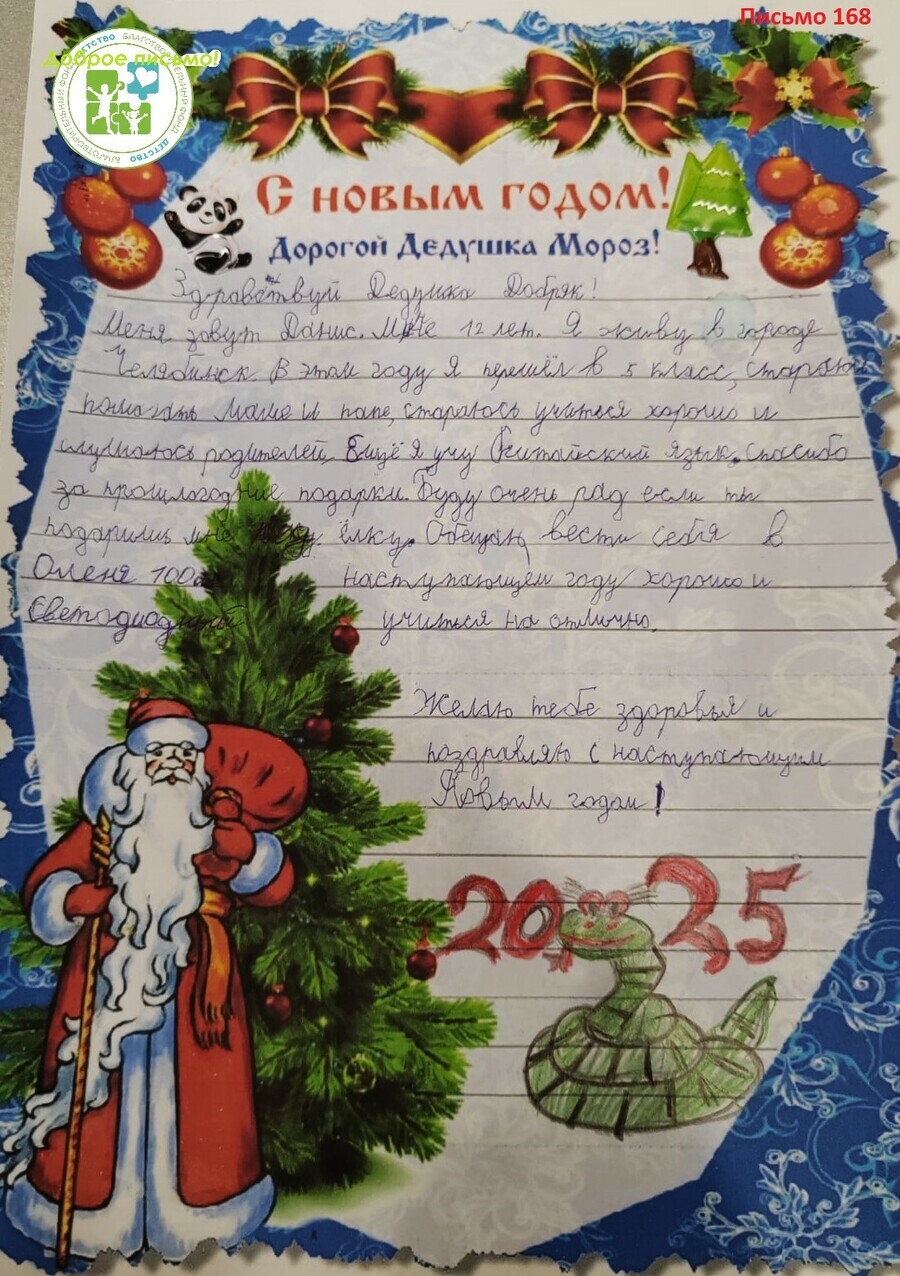 Письмо 168
Доброе письмо!
БЛАГОТВОРИТЕЛЬНЫЙ ФОНД ДЕТСТВО БЛАГОТВОРИТЕЛЬНЫЙ ФОНД ДЕТСТВО
С новым годом!
Дорогой Дедушка Мороз!
Здравствуй Дедушка Добряк!
Меня зовут Данис. Мне 12 лет. Я живу в городе
Челябинск. В этом году я перешёл в 5 класс, стараюсь
помогать маме и папе, стараюсь учиться хорошо и
слушаюсь родителей. Ещё я учу Китайский язык. Спасибо
за прошлогодние подарки. Буду очень рад если ты
подаришь мне ёлку. Обещаю вести себя в
Оленя 100 наступающем году хорошо и
Светодиодный учиться на отлично.
Желаю тебе здоровья и
поздравляю с наступающим
Новым годом!
2025